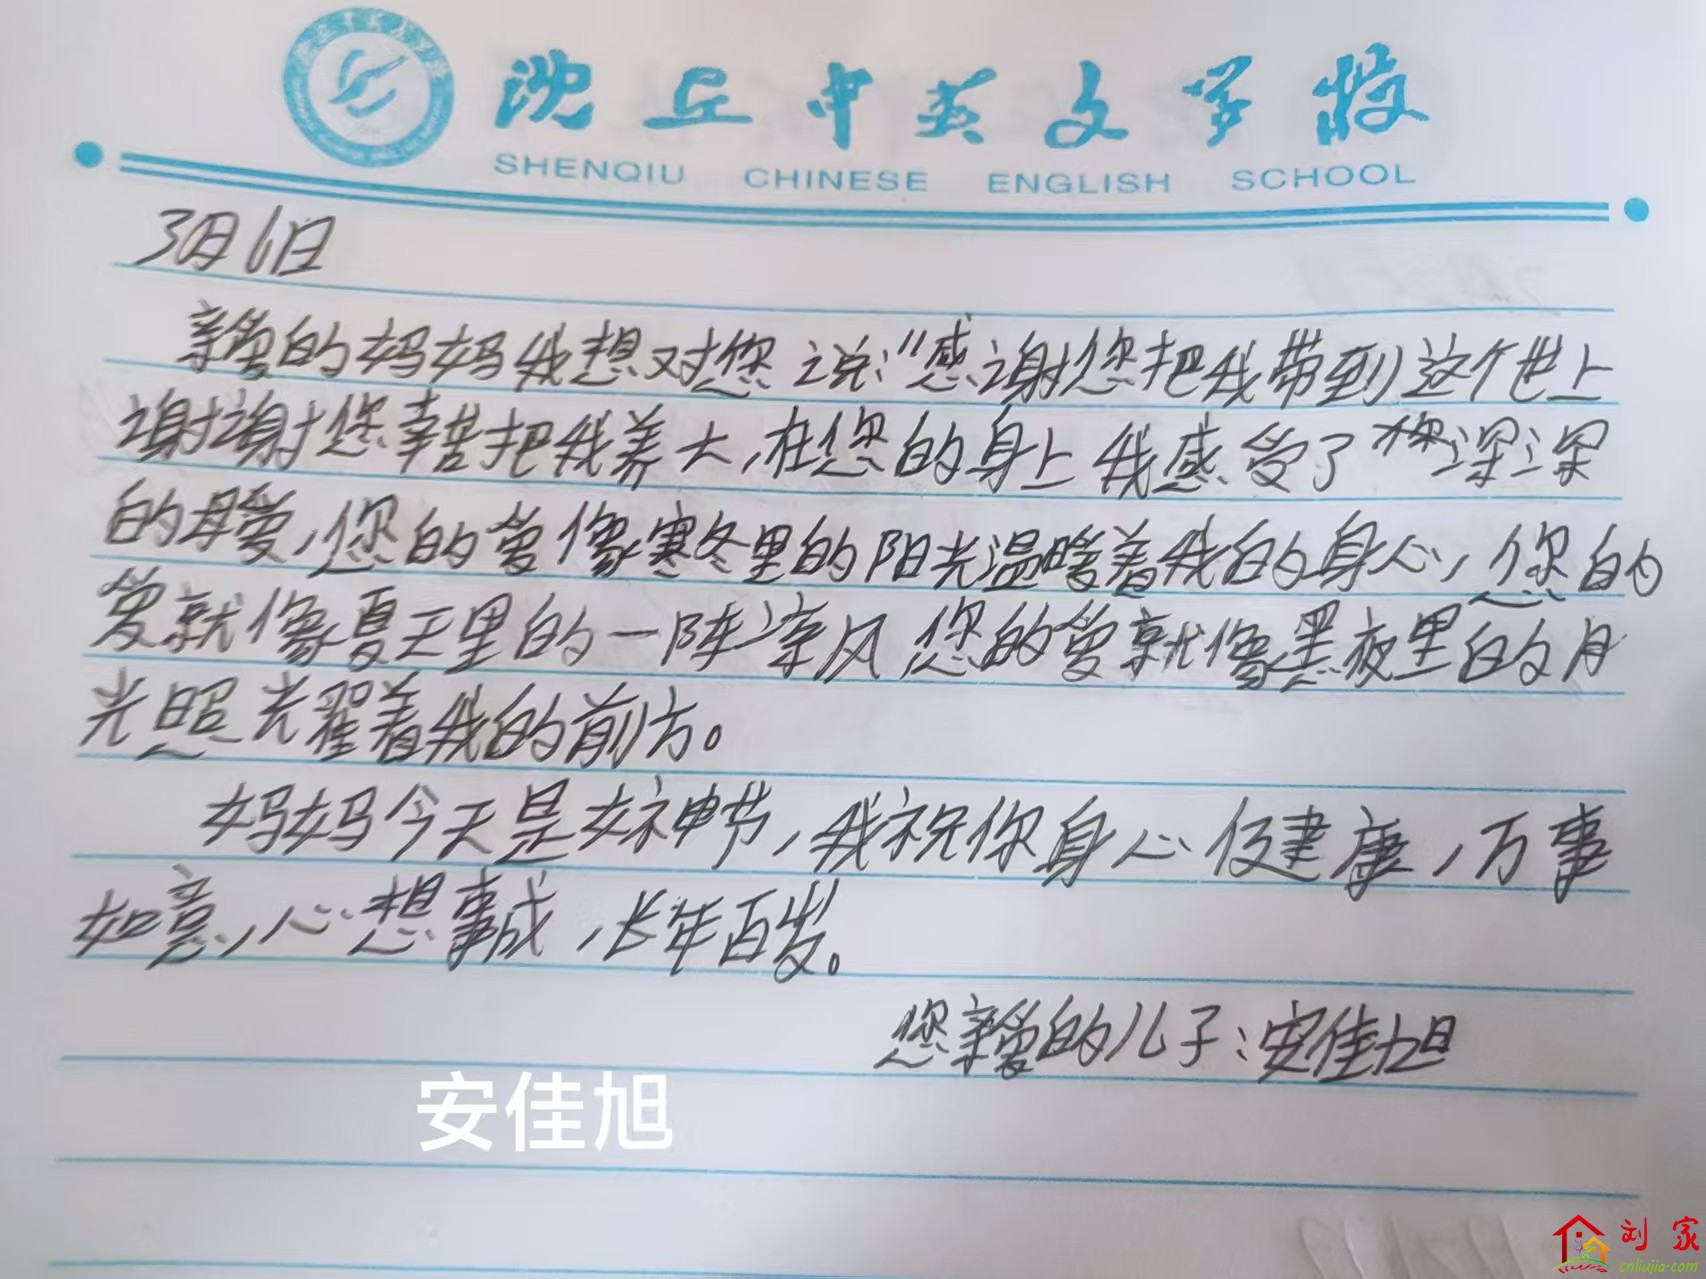 沈丘中英文学校
SHENQIU CHINESE ENGLISH SCHOOL
3月6日
亲爱的妈妈我想对您说:“感谢您把我带到这个世上
谢谢您辛苦把我养大,在您的身上我感受了深深
的母爱,您的爱像寒冬里的阳光温暖着我的身心,您的
爱就像夏天里的一阵凉风您的爱就像黑夜里的月
光照光耀着我的前方。
妈妈今天是女神节,我祝你身心健康,万事
如意,心想事成,长年百岁。
您亲爱的儿子:安佳旭
安佳旭
刘家
cnliujia.com